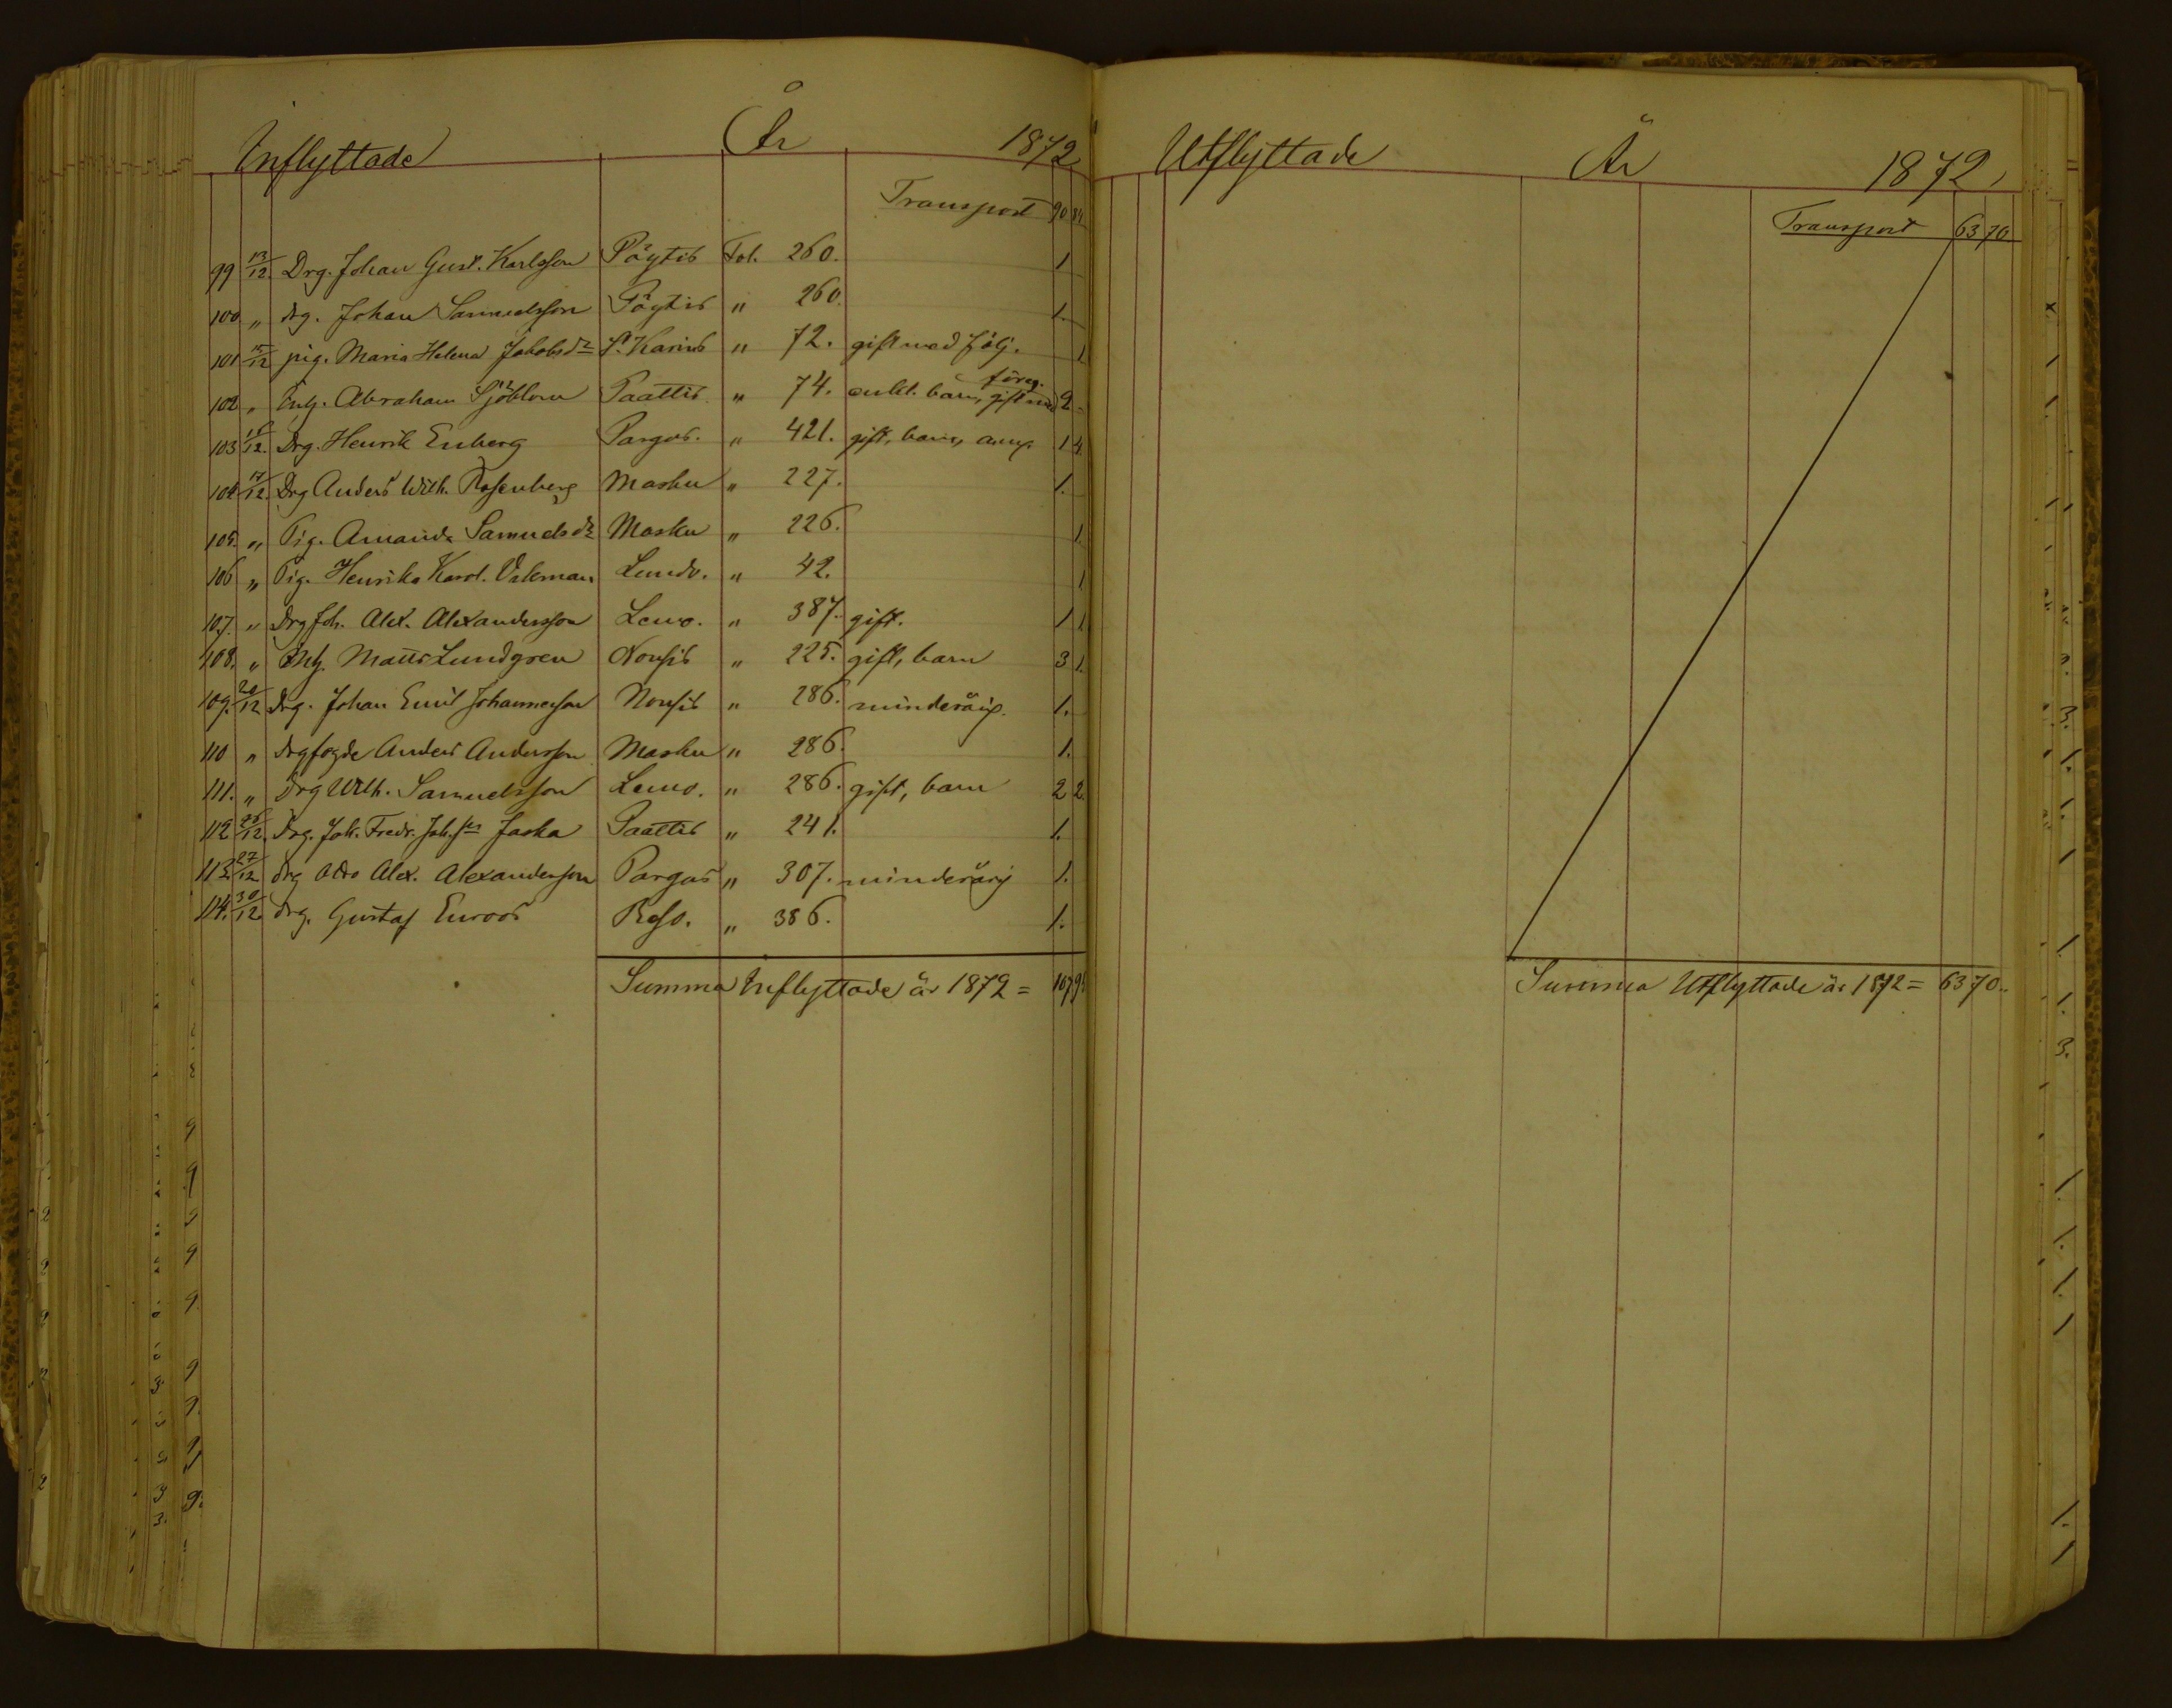 Inflyttade År 1872
Transport 90
99 13/12 Drg. Johan Gust. Karlsson Pöytis Fol. 260. 1
100 " drg. Johan Samuelsson Pöytis " 260. 1.
101 15/12 pig. Maria Helena Jakobsdr St Karins " 72. gift med följ. 1
102 " Abraham Sjöblom Paattis " 74. enkl. barn, gift med föreg. 2
103 12. Drg. Henrik Enberg Pargas. " 421. gift, barn, 1 4
104 17/12. Drg Anders Wilh. Rosenberg Masku " 227. 1.
105. " Pig. Amanda Samuelsdr Masku " 226. 1
106 " Pig. Henrika Karol. Lundo. " 42. 1
107. " Drg Joh. Alex. Alexandersson Lemo. " 387. gift. 1 1
108. " Matts Lundgren Nousis " 225. gift, barn 3 1.
109. 20/12 drg. Johan Emil Johannesson Nousis " 286. minderårig. 1.
110 " drgfogde Anders Andersson Masku " 286. 1.
111. " Drg Wilh. Samuelsson Lemo. " 286. gift, barn 2 2.
112 12. drg. Joh. Fredr. Joh.sn Jaska Paattis " 241. 1.
113 27/12 drg Otto Alex. Alexandersson Pargas " 307. minderårig 1.
114. 30/12. drg. Gustaf Enroos Reso. " 386. 1.
Summa Inflyttade år 1872 = 107
Utflyttade År 1872,
Transport 63 70
Summa Utflyttade år 1872 = 63 70.